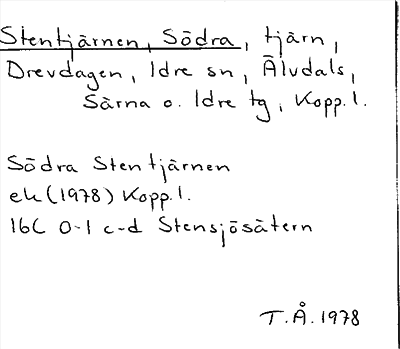 Stentjärnen, Södra, tjärn,
Drevdagen, Idre sn, Älvdals,
Särna o. Idre tg, Kopp. l.
Södra Stentjärnen
ek (1978) Kopp. l.
16C 0-1 c-d Stensjösätern
T.Å. 1978